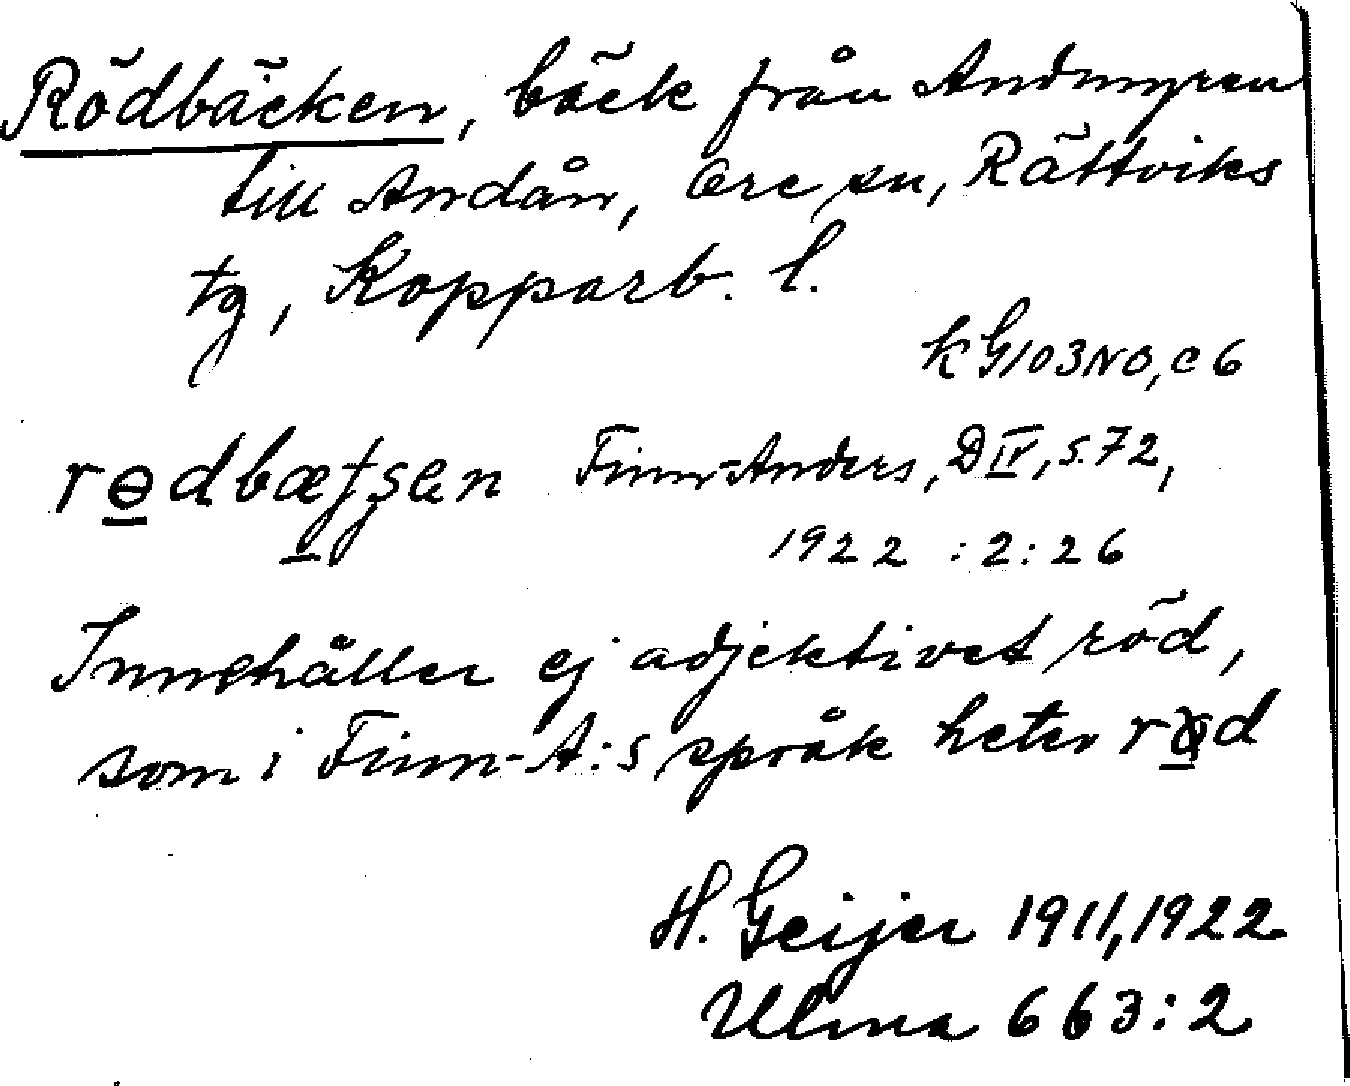 Rödbäcken, bäck från Andmyren
till Andån, Ore sn, Rättviks
tg, Kopparb. l.
k G103NO, c 6
Finn-Anders, D IV, s. 72,
1922 : 2 : 26
Innehåller ej adjektivet röd,
som i Finn-A:s språk heter
H. Geijer 1911, 1922
Ulma 663:2